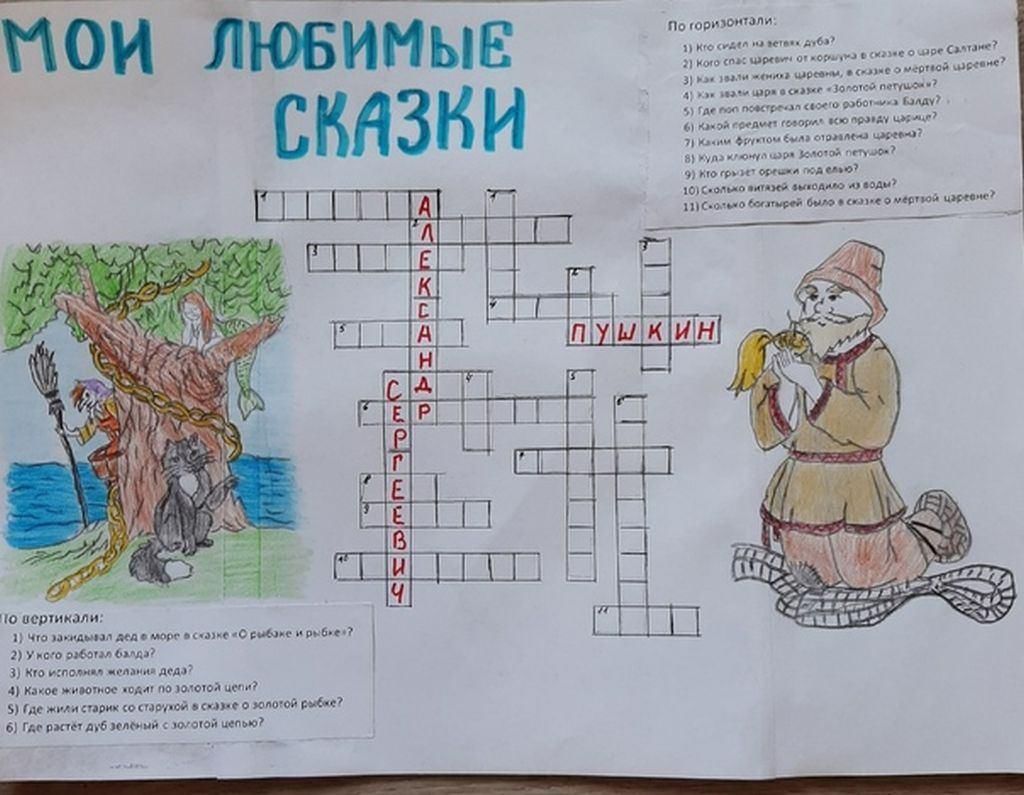 МОИ ЛЮБИМЫЕ
СКАЗКИ
По горизонтали:
1) Кто сидел на ветвях дуба?
2) Кого спас царевич от коршуна в сказке о царе Салтане?
3) Как звали жениха царевны, в сказке о мёртвой царевне?
4) Как звали царя в сказке «Золотой петушок»?
5) Где поп повстречал своего работника Балду?
6) Какой предмет говорил всю правду царице?
7) Каким фруктом была отравлена царевна?
8) Куда клюнул царя Золотой петушок?
9) Кто грызёт орешки под елью?
10) Сколько витязей выходило из воды?
11) Сколько богатырей было в сказке о мёртвой царевне?
АЛЕКСАНДР
СЕРГЕЕВИЧ
ПУШКИН
По вертикали:
1) Что закидывал дед в море в сказке «О рыбаке и рыбке»?
2) У кого работал балда?
3) Кто исполнял желания деда?
4) Какое животное ходит по золотой цепи?
5) Где жили старик со старухой в сказке о золотой рыбке?
6) Где растёт дуб зелёный с золотой цепью?